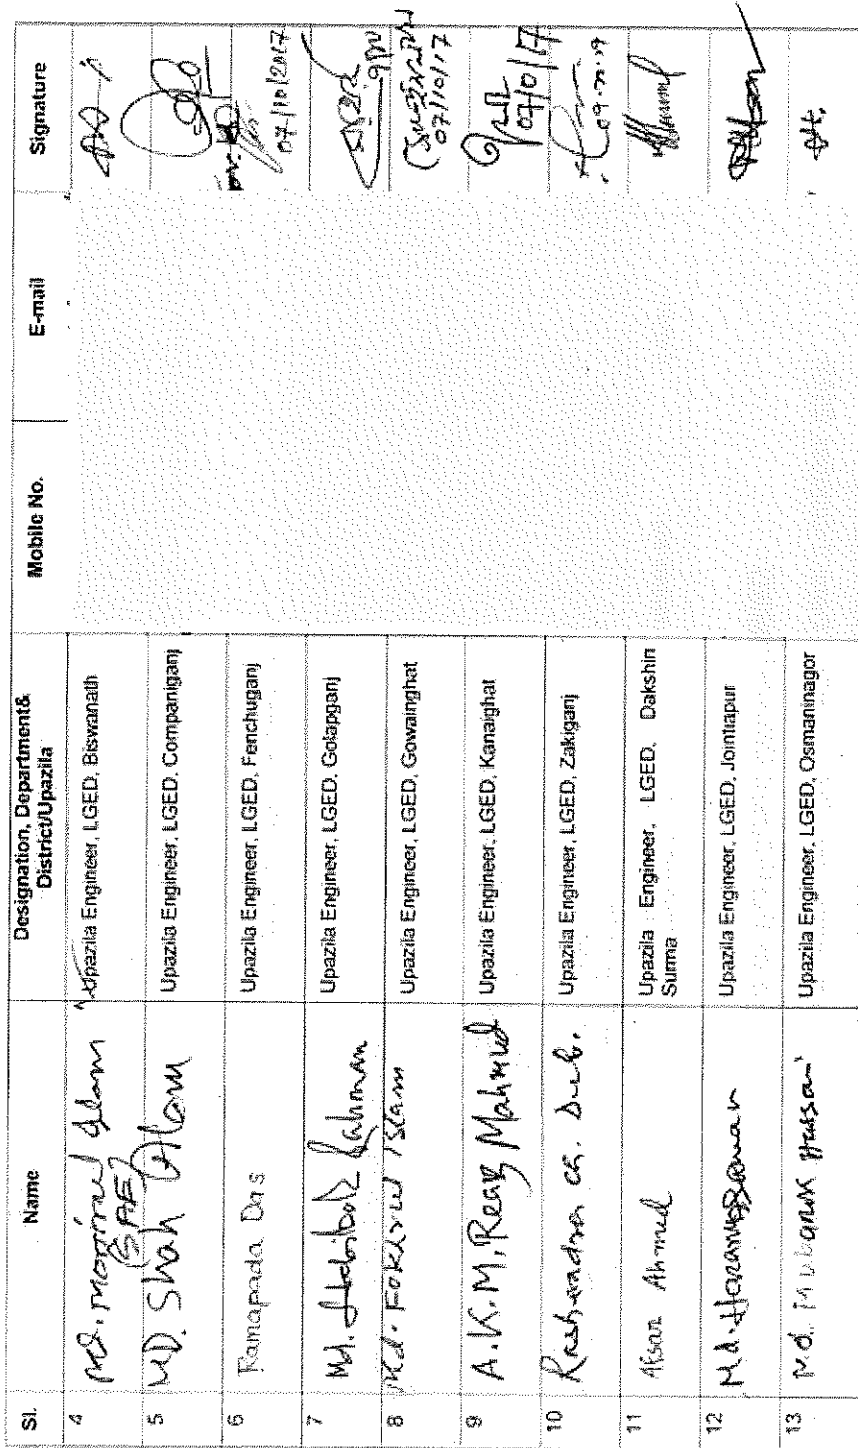 Sl. Name Designation, Department& District/Upazila Mobile No. E-mail Signature
4 Md. Monirul Islam (SAE) Upazila Engineer, LGED, Biswanath
5 MD. Shah Alom Upazila Engineer, LGED, Companiganj
6 Ramapada Das Upazila Engineer, LGED, Fenchuganj 07/10/2017
7 Md. Habibur Rahman Upazila Engineer, LGED, Golapganj
8 Md. Fokhrul Islam Upazila Engineer, LGED, Gowainghat 07/10/17
9 A.K.M. Reaz Mahmud Upazila Engineer, LGED, Kanaighat 07/10/17
10 Upazila Engineer, LGED, Zakiganj
11 Afsar Ahmed Upazila Engineer, LGED, Dakshin Surma
12 Md. Upazila Engineer, LGED, Jointiapur
13 Md. Mubarak Hassan Upazila Engineer, LGED, Osmaninagor